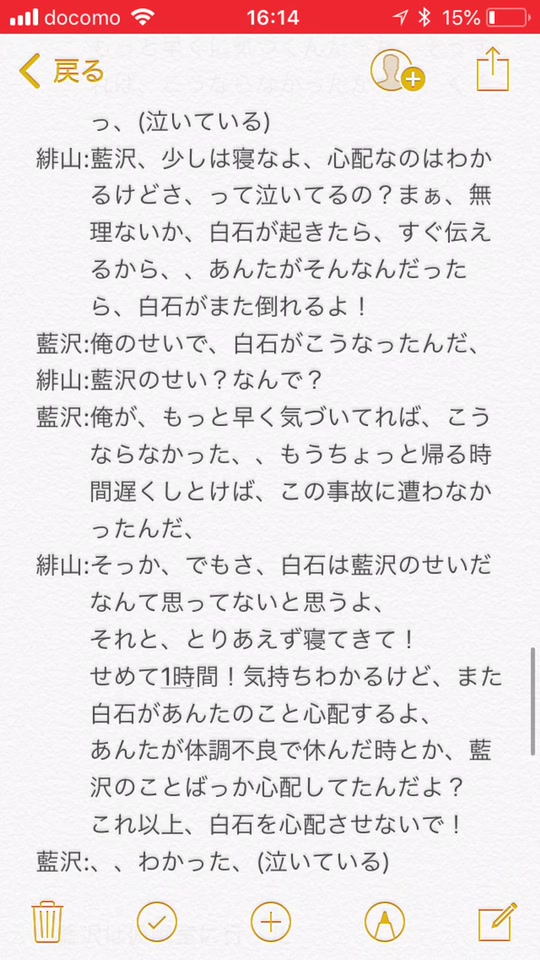 docomo 16:14 15%
戻る
っ、(泣いている)
緋山:藍沢、少しは寝なよ、心配なのはわか
るけどさ、って泣いてるの？まぁ、無
理ないか、白石が起きたら、すぐ伝え
るから、、あんたがそんなんだった
ら、白石がまた倒れるよ！
藍沢:俺のせいで、白石がこうなったんだ、
緋山:藍沢のせい？なんで？
藍沢:俺が、もっと早く気づいてれば、こう
ならなかった、、もうちょっと帰る時
間遅くしとけば、この事故に遭わなか
ったんだ、
緋山:そっか、でもさ、白石は藍沢のせいだ
なんて思ってないと思うよ、
それと、とりあえず寝てきて！
せめて1時間！気持ちわかるけど、また
白石があんたのこと心配するよ、
あんたが体調不良で休んだ時とか、藍
沢のことばっか心配してたんだよ？
これ以上、白石を心配させないで！
藍沢:、、わかった、(泣いている)